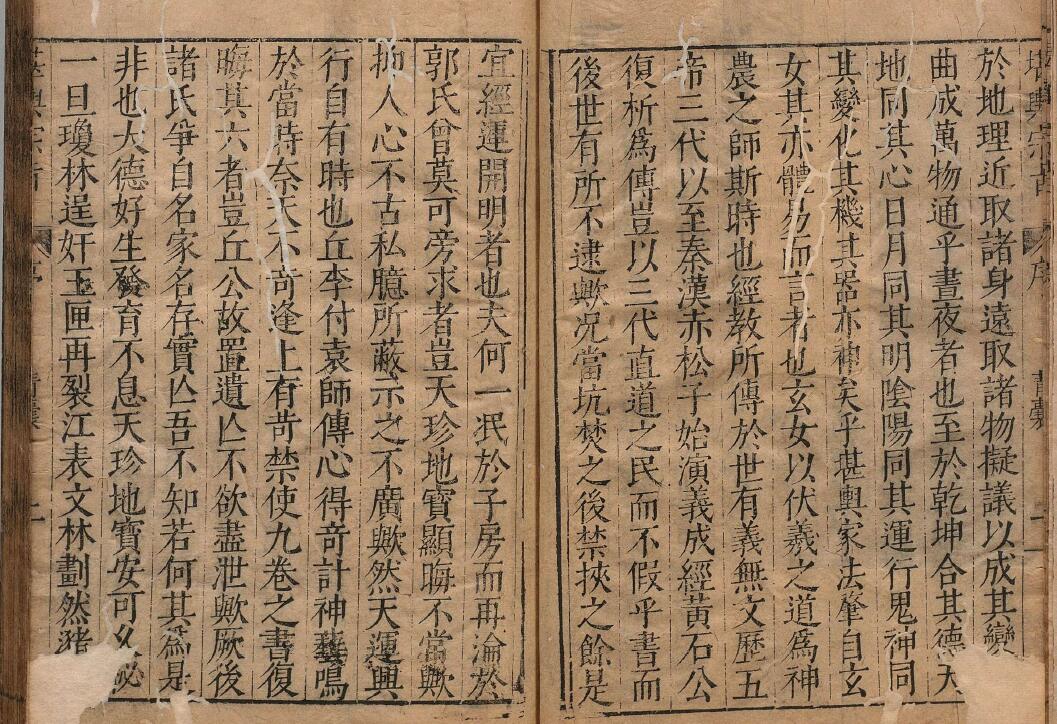 堪輿宗旨 序 青囊 二
於地理近取諸身遠取諸物擬議以成其變
曲成萬物通乎晝夜者也至於乾坤合其德天
地同其心日月同其明陰陽同其運行鬼神同
其變化其機其器亦神矣乎堪輿家法肇自玄
女其亦體易而言者也玄女以伏羲之道爲神
農之師斯時也經教所傳於世有義無文歷五
帝三代以至秦漢赤松子始演義成經黃石公
復析爲傳豈以三代直道之民而不假乎書而
後世有所不逮歟況當坑焚之後禁挾之餘是
宜經運開明者也夫何一泯於子房而再淪於
郭氏曾莫可旁求者豈天珍地寶顯晦不當歟
抑人心不古私臆所蔽示之不廣歟然天運興
行自有時也丘李付袁師傳心得奇計神藝鳴
於當時奈天不奇逢上有苛禁使九卷之書復
晦其六者豈丘公故置遺亾不欲盡泄歟厥後
諸氏爭自名家名存實亾吾不知若何其爲是
非也大德好生發育不息天珍地寶安可久祕
一旦瓊林逞奸玉匣再裂江表文林劃然豬